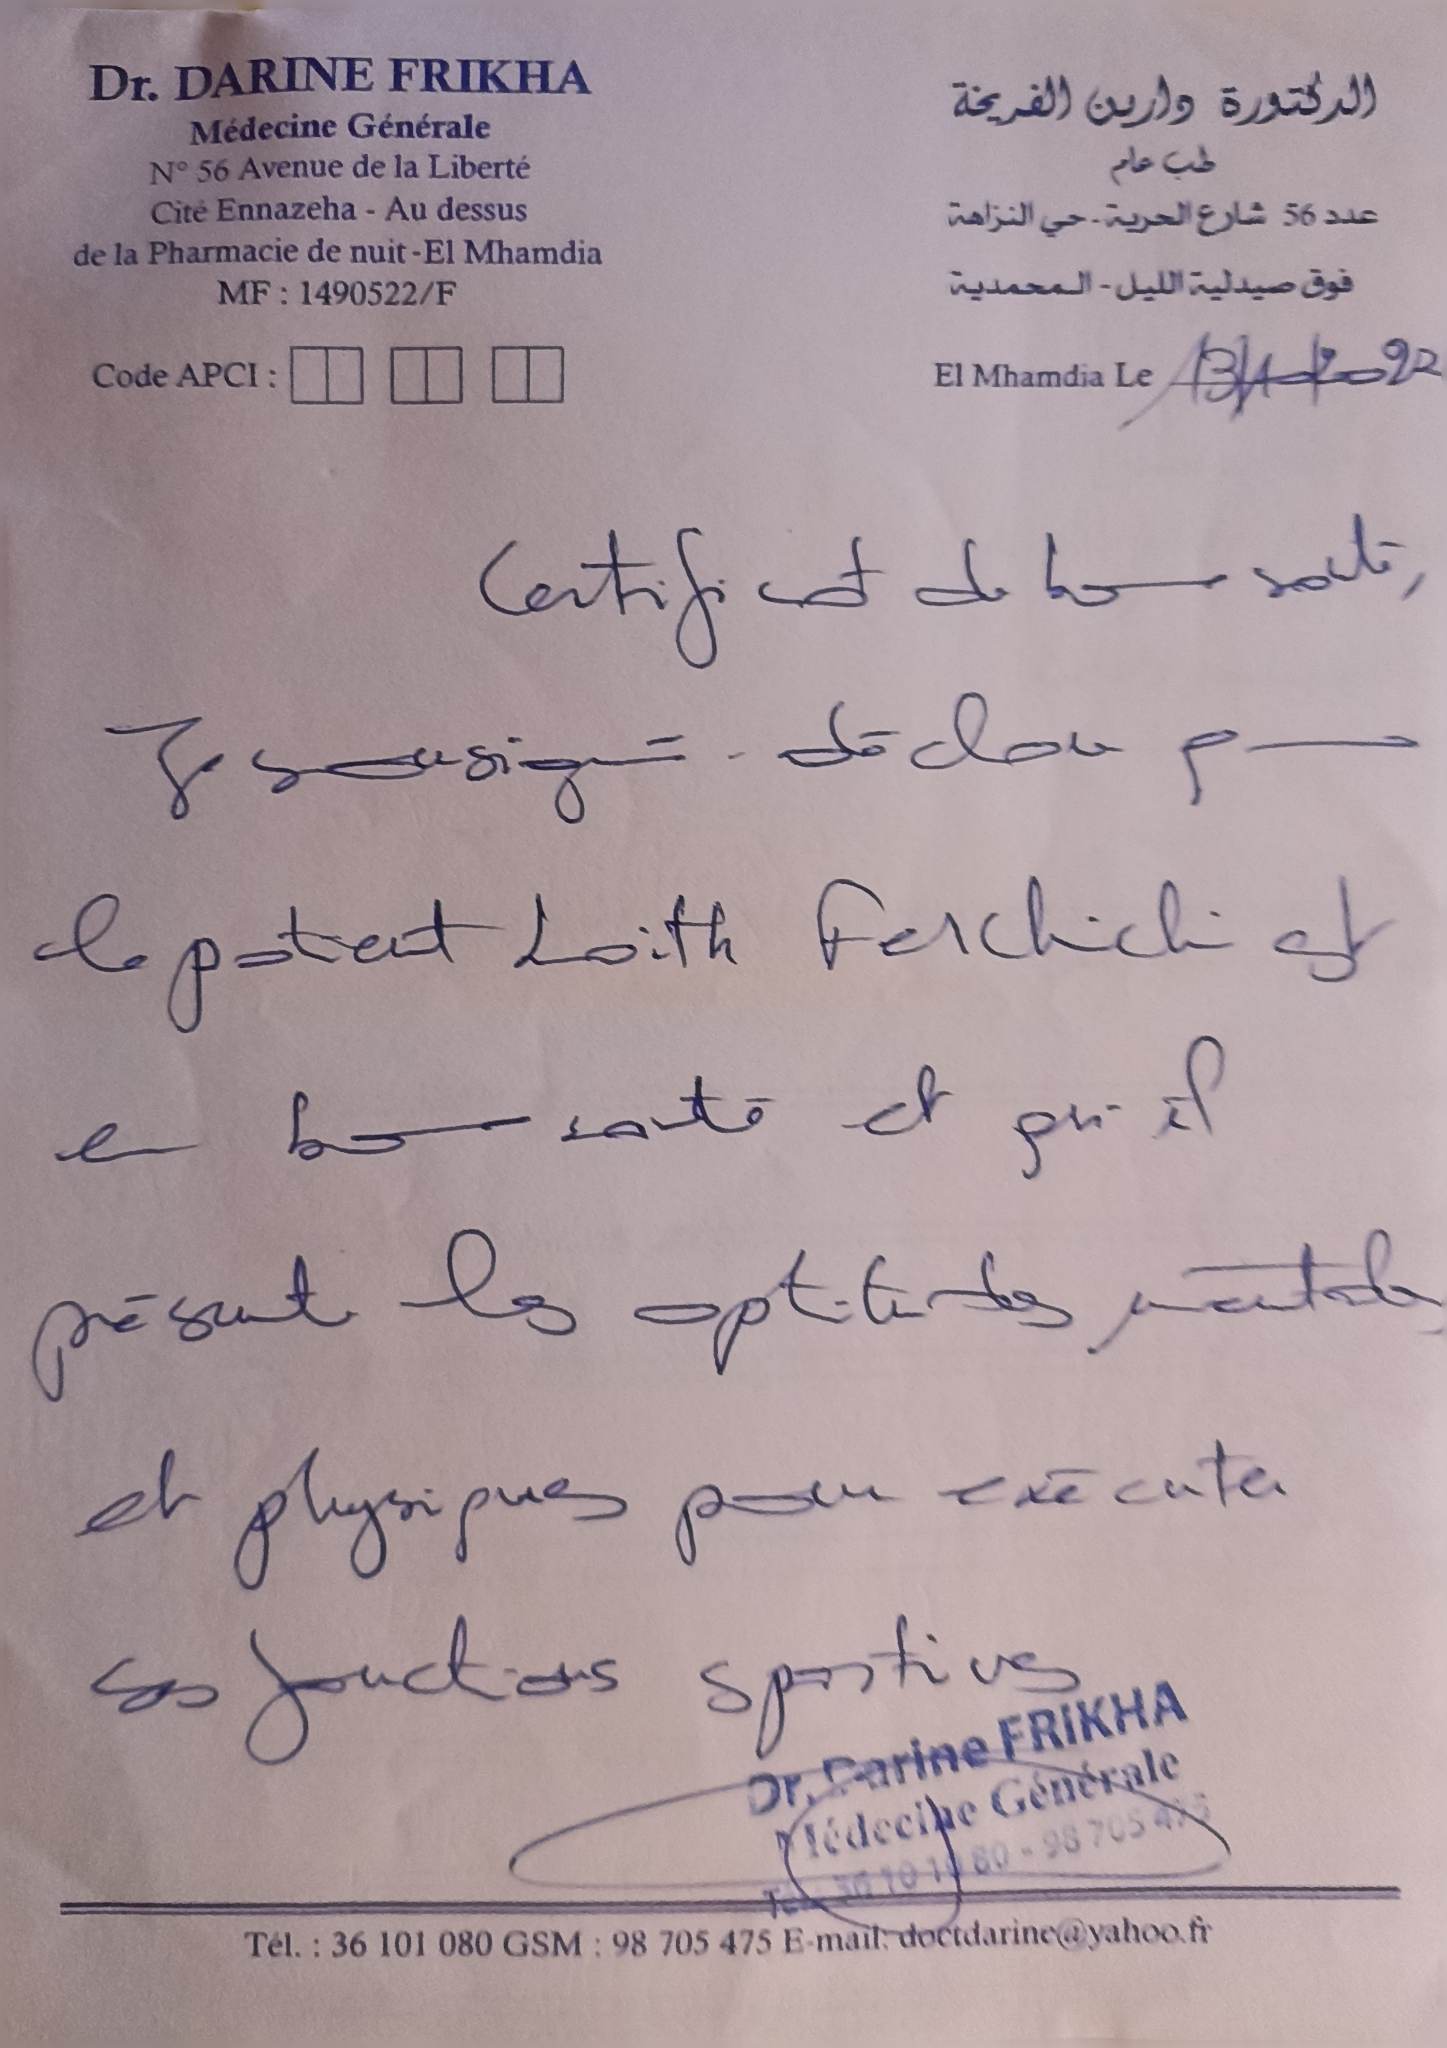 Dr. DARINE FRIKHA
Médecine Générale
N° 56 Avenue de la Liberté
Cité Ennazeha - Au dessus
de la Pharmacie de nuit -El Mhamdia
MF : 1490522/F
Code APCI :
الدكتورة دارين الفريخة
طب عام
عدد 56 شارع الحرية - حي النزاهة
فوق صيدلية الليل - المحمدية
El Mhamdia Le
Certificat de bonne santé,
Je soussigné déclare
le patient Laith Ferchichi est
en bonne santé et qu'il
présente les aptitudes mentales
et physiques pour exécuter
ses fonctions sportives
Dr. Darine FRIKHA
Médecine Générale
98 705 475
Tél. : 36 101 080 GSM : 98 705 475 E-mail: doctdarine@yahoo.fr